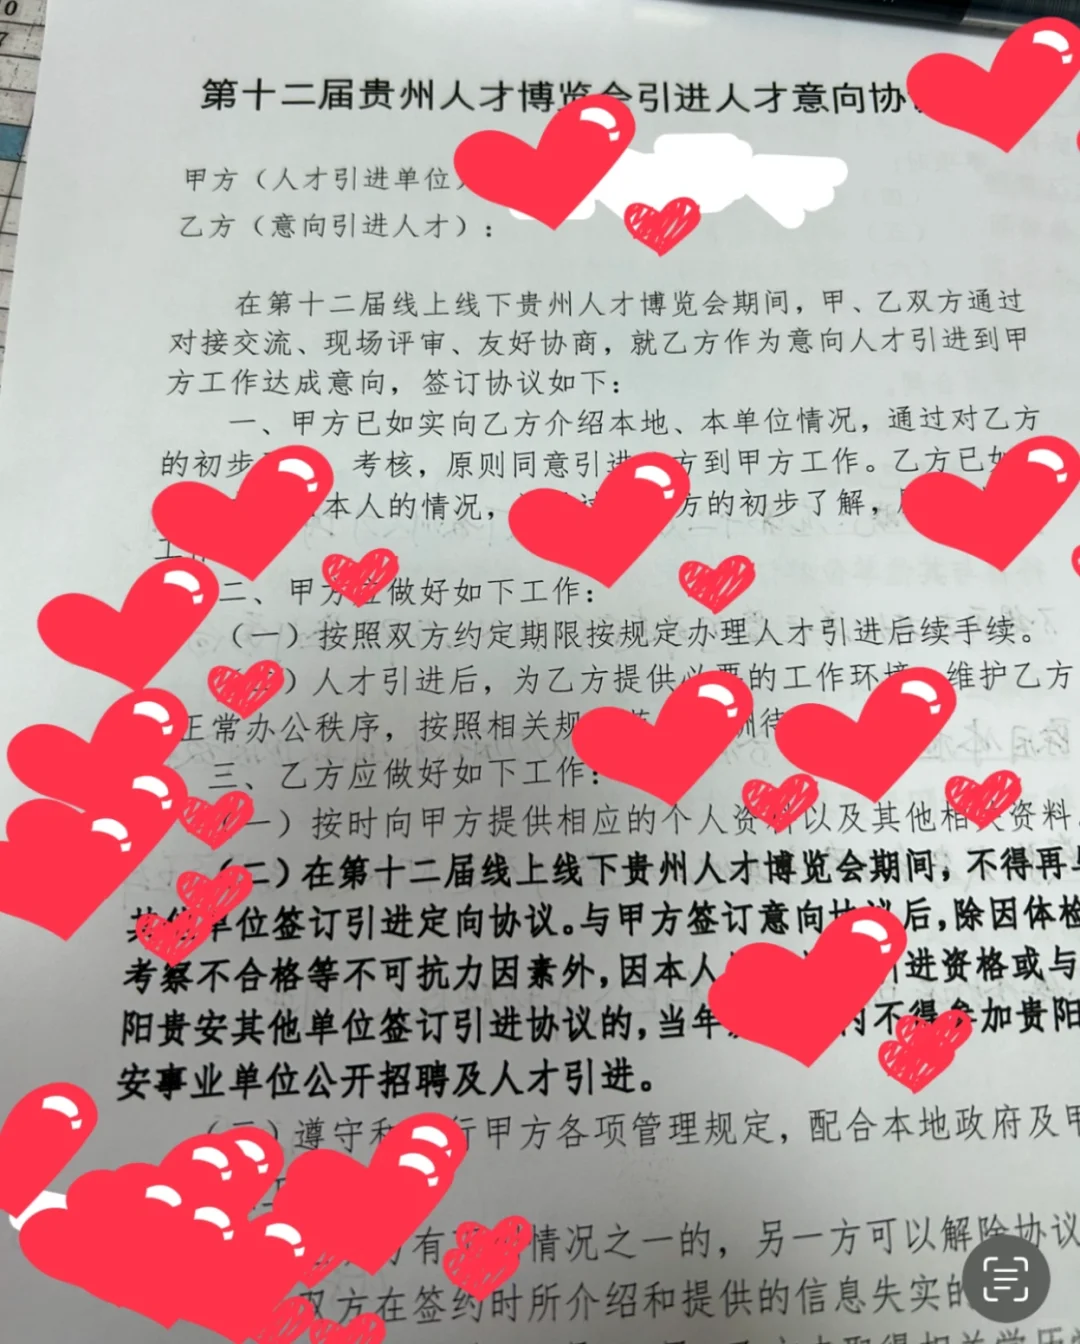 第十二届贵州人才博览会引进人才意向协
甲方（人才引进单位）
乙方（意向引进人才）：
在第十二届线上线下贵州人才博览会期间，甲、乙双方通过
对接交流、现场评审、友好协商，就乙方作为意向人才引进到甲
方工作达成意向，签订协议如下：
一、甲方已如实向乙方介绍本地、本单位情况，通过对乙方
的初步 考核，原则同意引进 方到甲方工作。乙方已如
本人的情况， 方的初步了解，
工作
二、甲方应做好如下工作：
（一）按照双方约定期限按规定办理人才引进后续手续。
）人才引进后，为乙方提供必要的工作环境 维护乙方
正常办公秩序，按照相关规 酬待
三、乙方应做好如下工作：
（一）按时向甲方提供相应的个人资料以及其他相关资料
（二）在第十二届线上线下贵州人才博览会期间，不得再与
其他单位签订引进定向协议。与甲方签订意向协议后，除因体检
考察不合格等不可抗力因素外，因本人 引进资格或与
阳贵安其他单位签订引进协议的，当年 内不得参加贵阳
安事业单位公开招聘及人才引进。
（三）遵守和 行甲方各项管理规定，配合本地政府及甲
有 情况之一的，另一方可以解除协议
双方在签约时所介绍和提供的信息失实的
0
7